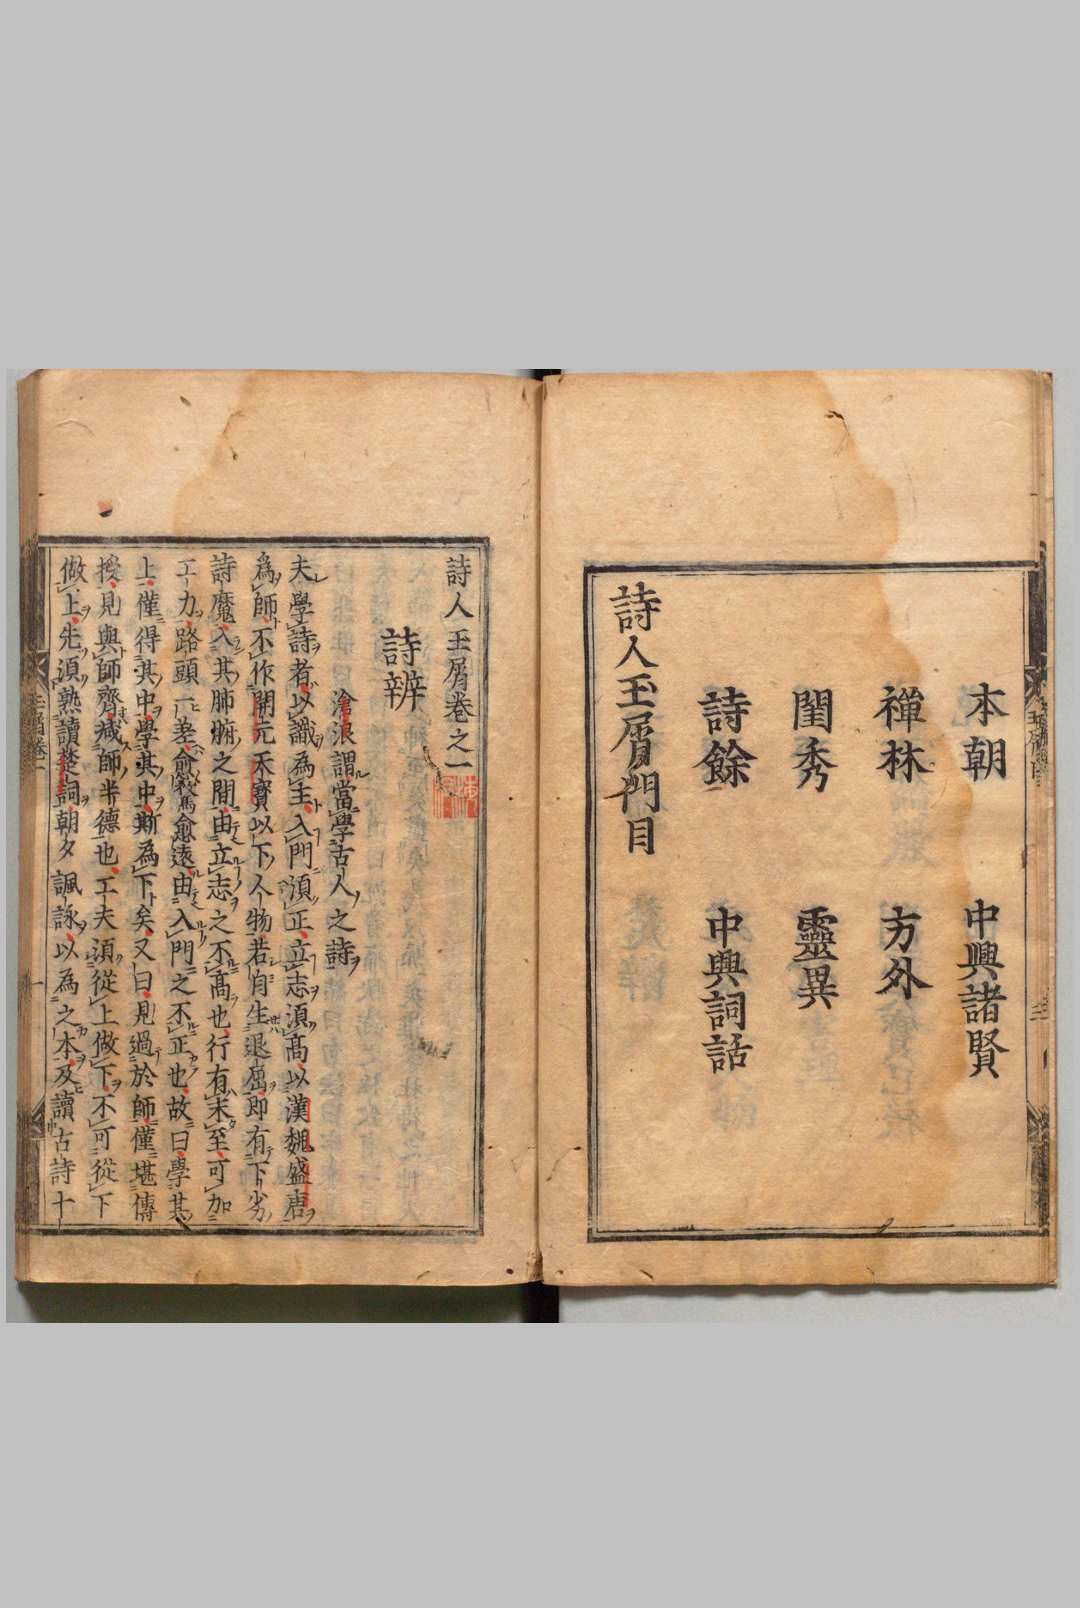 本朝　中興諸賢
禪林　方外
閨秀　靈異
詩餘　中興詞話
詩人玉屑門目
詩人玉屑卷之一
詩辨
滄浪謂當學古人之詩
夫學詩者以識為主入門須正立志須高以漢魏盛唐
為師不作開元天寶以下人物若自生退屈即有下劣
詩魔入其肺腑之間由立志之不高也行有未至可加
工力路頭一差愈騖愈遠由入門之不正也故曰學其
上僅得其中學其中斯為下矣又曰見過於師僅堪傳
授見與師齊減師半德也工夫須從上做下不可從下
做上先須熟讀楚詞朝夕諷詠以為之本及讀古詩十